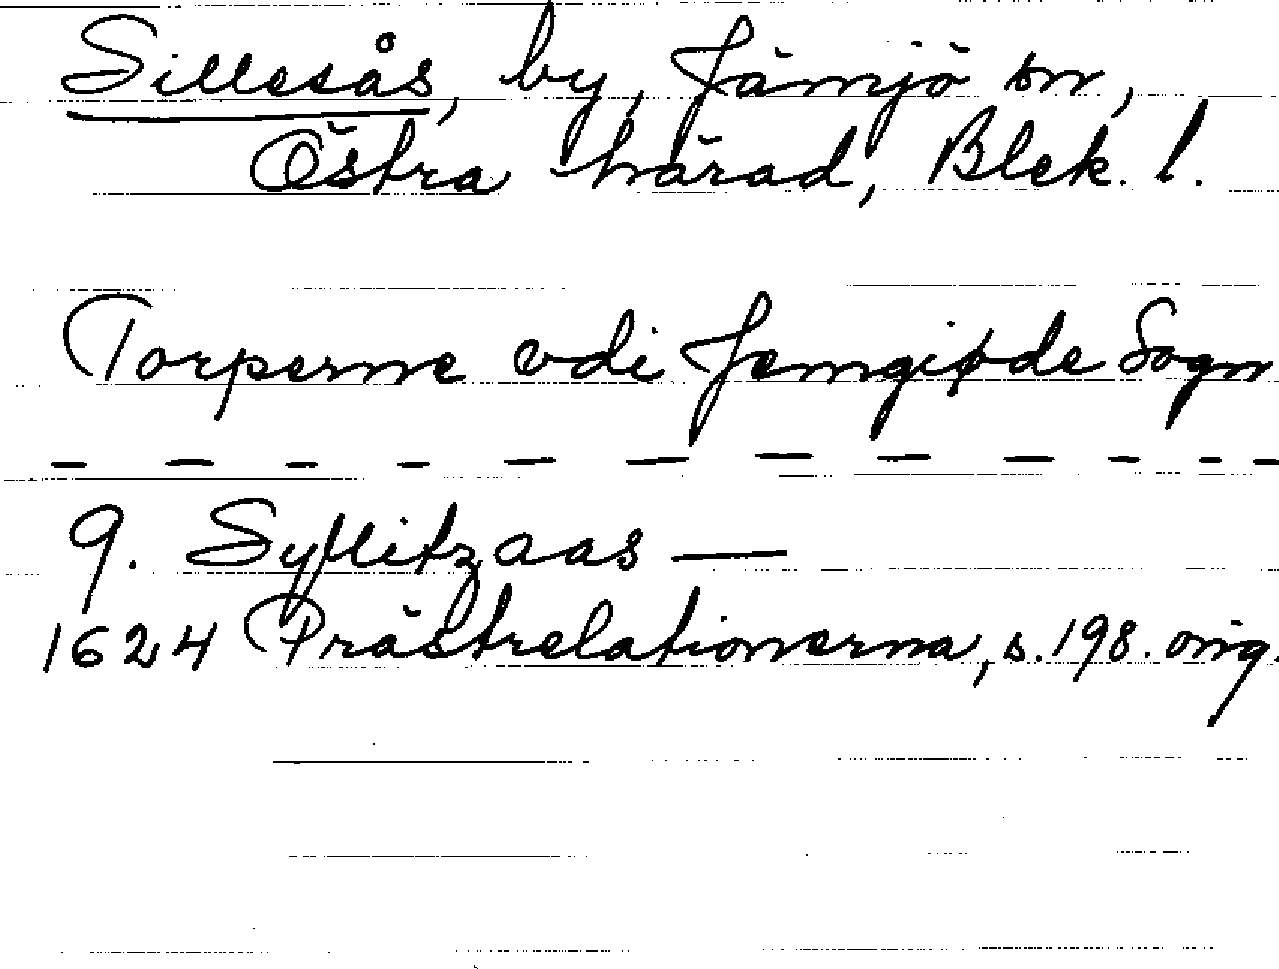 Sillesås, by, Jämjö sn,
Östra härad, Blek. l.
Torperne vdi Jemgiøde Sogn
— — — — — — — — — — —
9. Syllitzaas —
1624 Prästrelationerna, s. 198. orig.